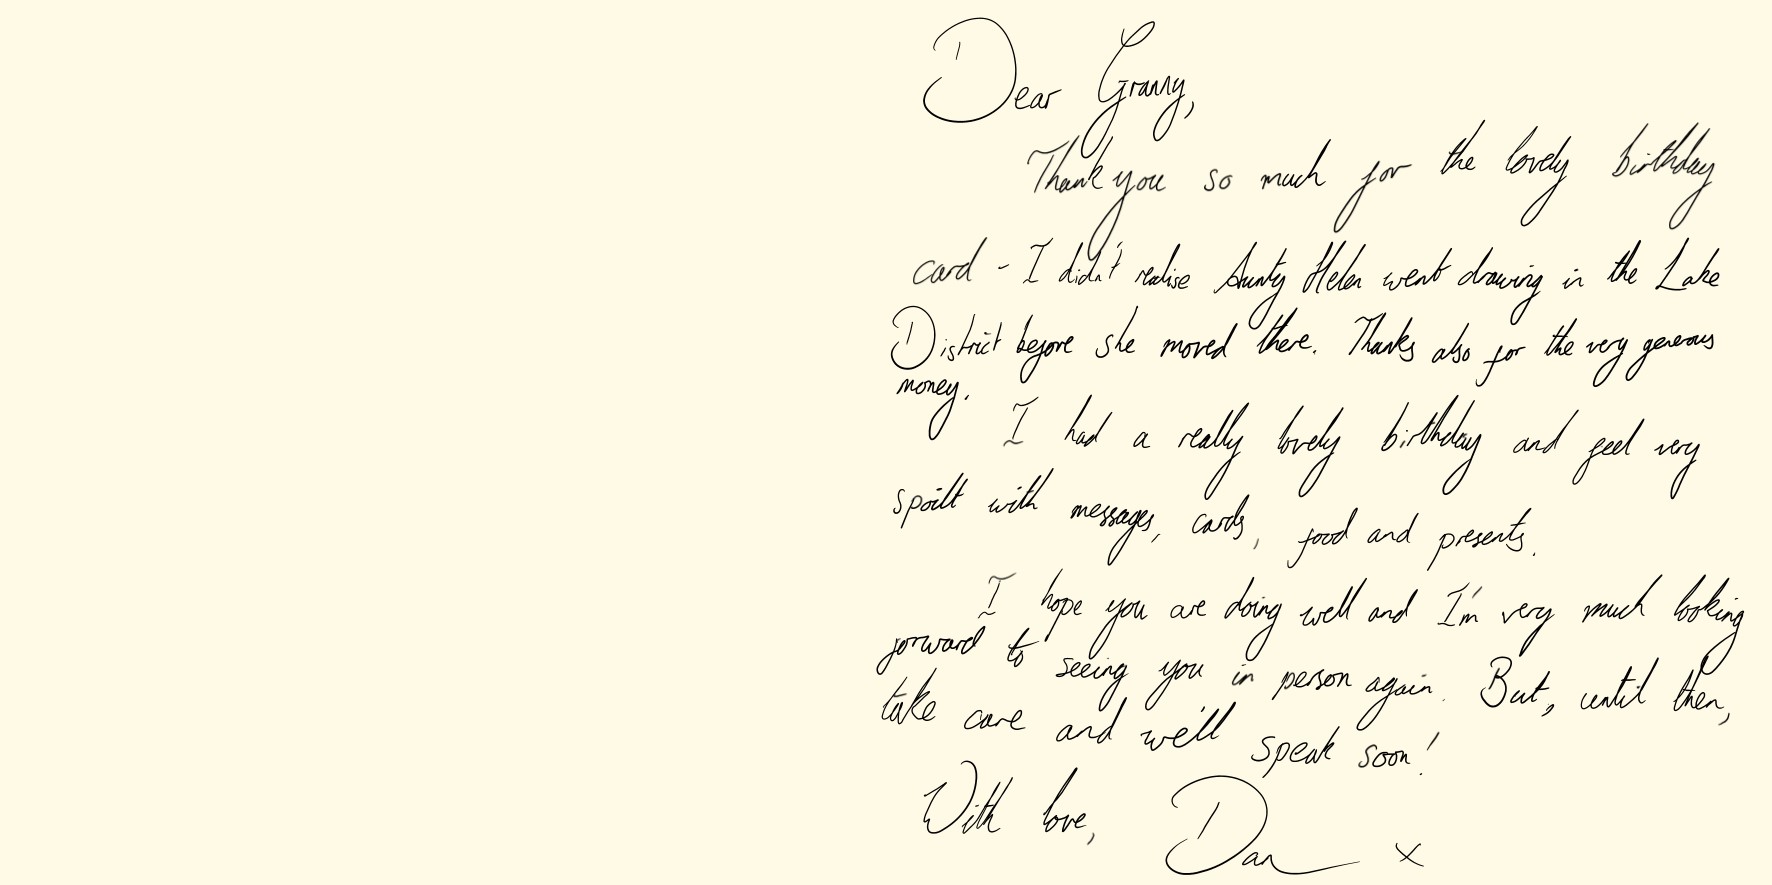 Dear Granny,
Thank you so much for the lovely birthday
card - I didn't realise Aunty Helen went drawing in the Lake
District before she moved there. Thanks also for the very generous
money.
I had a really lovely birthday and feel very
spoilt with messages, cards, food and presents.
I hope you are doing well and I'm very much looking
forward to seeing you in person again. But, until then,
take care and we'll speak soon!
With love, Dan x